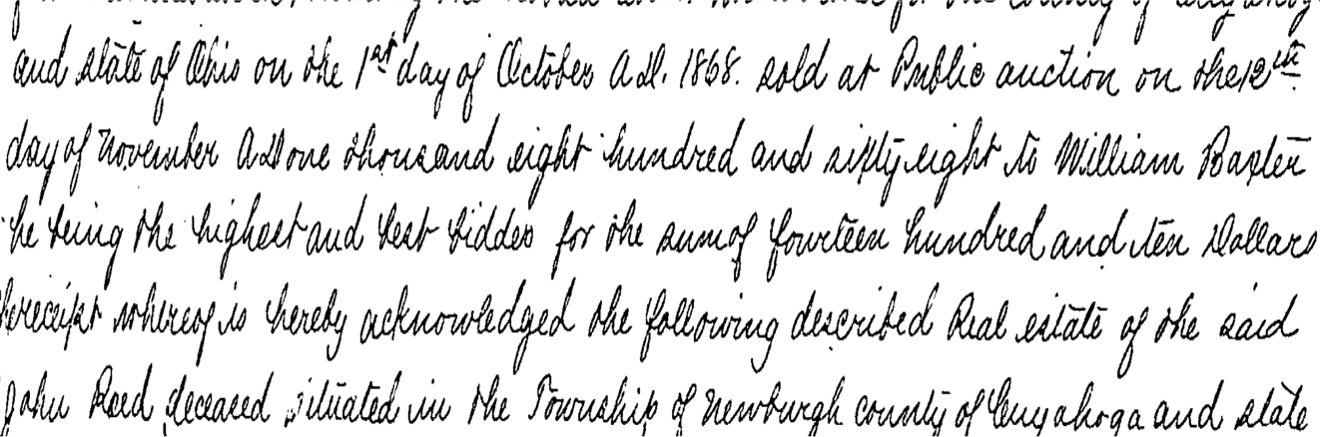 the County of
and state of Ohio on the 1st day of October A.D. 1868. sold at Public auction on the 12th
day of November A D one thousand eight hundred and sixty eight to William Baxter
he being the highest and best bidder for the sum of fourteen hundred and ten Dollars
receipt whereof is hereby acknowledged the following described Real estate of the said
John Reed deceased situated in the Township of Newburgh county of Cuyahoga and state